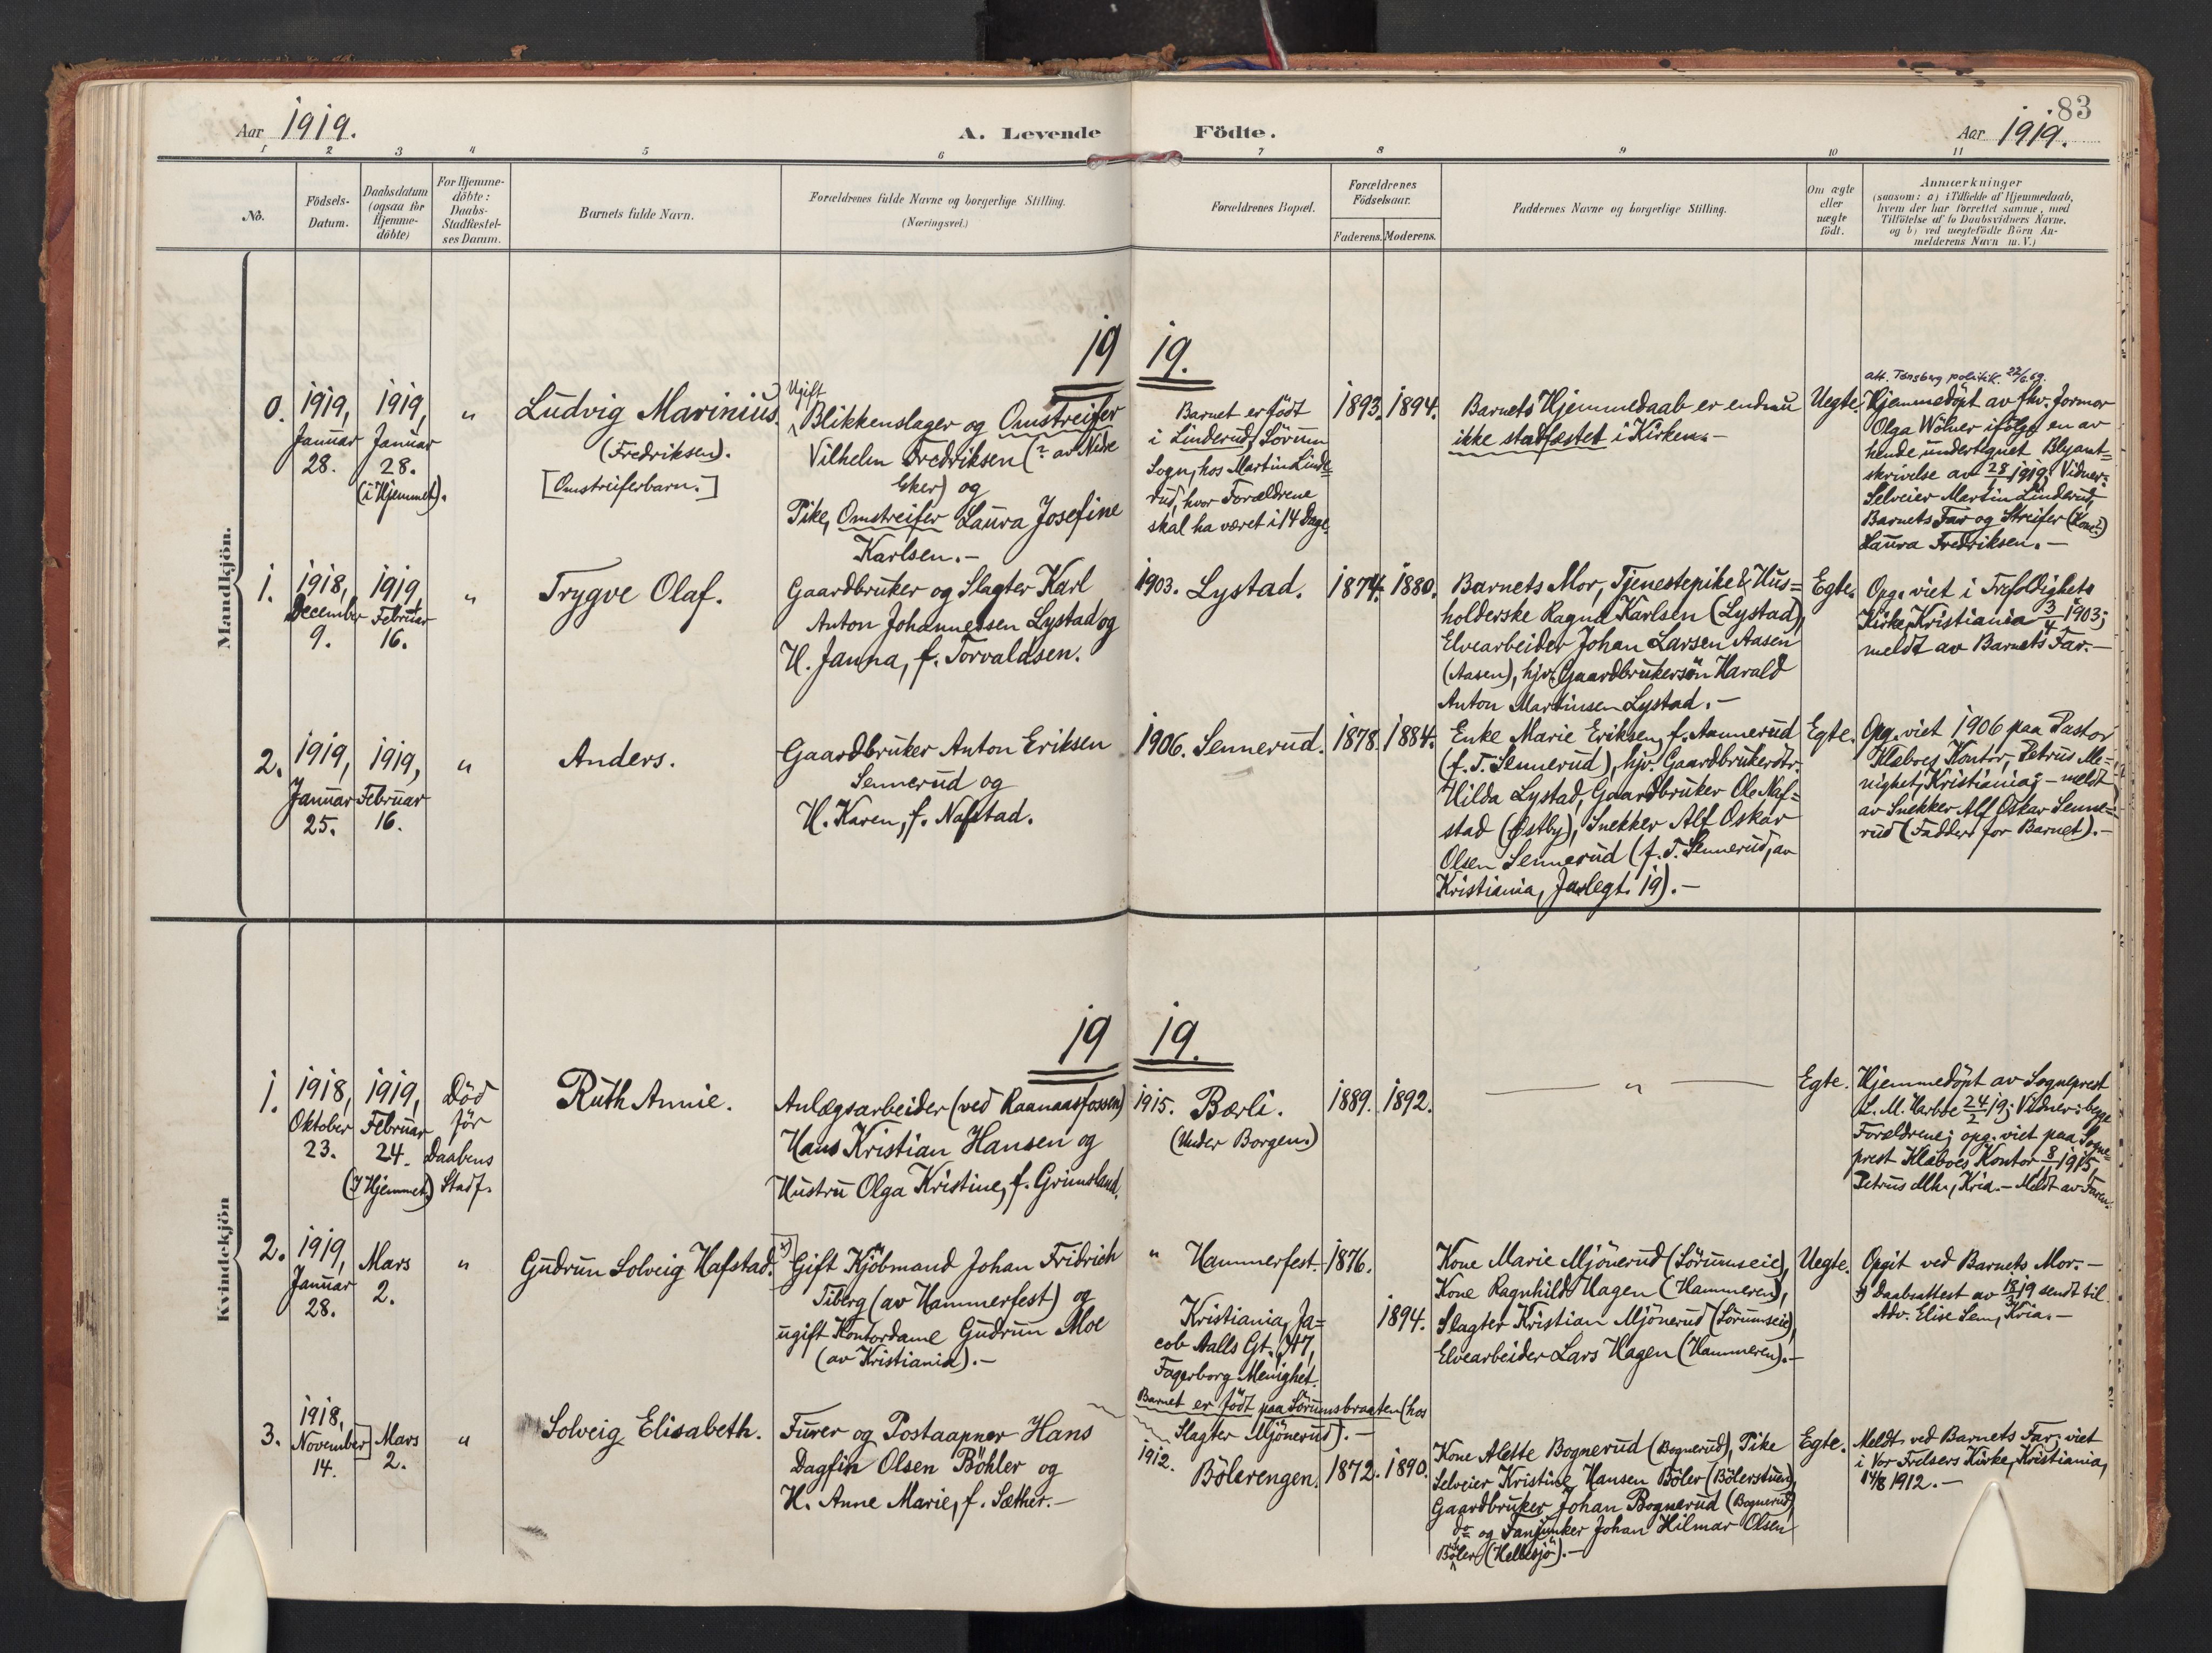 83
Aar 1919.
A. Levende Födte.
Aar 1919.
1 2 3 4 5 6 7 8 9 10 11
No.
Födsels-
Datum.
Daabsdatum
(ogsaa for
Hjemme-
döbte)
For Hjemme-
döbte:
Daabs-
Stadfæstel-
ses Datum.
Barnets fulde Navn.
Forældrenes fulde Navne og borgerlige Stilling.
(Næringsvei.)
Forældrenes Bopæl.
Forældrenes
Födselsaar.
Faderens. Moderens.
Faddernes Navne og borgerlige Stilling.
Om ægte
eller
uægte
födt.
Anmærkninger
(saasom: a) i Tilfælde af Hjemmedaab,
hvem der har forrettet samme, med
Tilföielse af to Daabsvidners Navne.
og b) ved uægtefödte Börn An-
melderens Navn m. V.)
Mandkjön.
19 19.
0.
1919,
Januar
28.
1919,
Januar
28.
(i Hjemmet).
"
Ludvig Marinius.
(Fredriksen).
[Omstreiferbarn.]
Ugift
Blikkenslager og Omstreifer
Vilhelm Fredriksen (? av Nedre
Eker) og
Pike, Omstreifer Laura Josefine
Karlsen.-
Barnet er födt
i Linderud, Sörum
Sogn, hos Martin Linde-
rud, hvor Forældrene
skal ha været i 14 Dage.
1893. 1894.
Barnets Hjemmedaab er endnu
ikke stadfæstet i Kirken.-
Uegte.
att. Tønsberg politik. 22/6.69.
Hjemmedöpt av fhv. Jormor
Olga Wölner ifölge en av
hende undertegnet Blyant-
skrivelse av 28/1 1919; Vidner:
Selveier Martin Linderud,
Barnets Far og Streifer (Kone?)
Laura Fredriksen.-
1.
1918,
December
9.
1919,
Februar
16.
"
Trygve Olaf.
Gaardbruker og Slagter Karl
Anton Johannessen Lystad og
H. Janna, f. Torvaldsen.
1903. Lystad.
1874. 1880.
Barnets Mor, Tjenestepike & Hus-
holderske Ragna Karlsen (Lystad),
Elvearbeider Johan Larsen Aasen
(Aasen), hjv. Gaardbrukersön Harald
Anton Martinsen Lystad.-
Egte.
Opg. viet i Trefoldighets
Kirke, Kristiania 3/4 1903;
meldt av Barnets Far.-
2.
1919,
Januar
25.
1919,
Februar
16.
"
Anders.
Gaardbruker Anton Eriksen
Sennerud og
H. Karen, f. Nafstad.
1906. Sennerud.
1878. 1884.
Enke Marie Eriksen, f. Aannerud
(f. T. Sennerud), hjv. Gaardbrukerdtr.
Hilda Lystad, Gaardbruker Ole Naf-
stad (Østby), Snekker Alf Oskar
Olsen Sennerud (f. T. Sennerud, av
Kristiania, Jarlegt. 19).-
Egte.
Opg. viet 1906 paa Pastor
Klæboes Kontor, Petrus Me-
nighet, Kristiania; - meldt
av Snekker Alf Oskar Senne-
rud (Fadder for Barnet).-
Kvindekjön
19 19.
1.
1918,
Oktober
23.
1919,
Februar
24.
(I Hjemmet)
Död
för
Daabens
Stadf.
Ruth Annie.
Anlægsarbeider (ved Raanaasfossen)
Hans Kristian Hansen og
Hustru Olga Kristine, f. Grimsland.
1915. Bærli.
(Under Borgen.)
1889. 1892.
— " —
Egte.
Hjemmedöpt av Sogneprest
L. M. Harboe 24/2 19; Vidner: begge
Forældrene; opg. viet paa Sogne-
prest Klæboes Kontor 8/11 1915,
Petrus Mh., Kria.- Meldt av Faren.
2.
1919,
Januar
28.
Mars
2.
"
Gudrun Solveig Hafstad.
x)
Gift Kjöbmand Johan Fridrich
Tiberg (av Hammerfest) og
ugift Kontordame Gudrun Moe
(av Kristiania).-
" Hammerfest.
Kristiania, Ja-
cob Aalls Gt. 47,
Fagerborg Menighet.
Barnet er födt paa Sörumsbraaten (hos
Slagter Mjönerud).-
1876.
1894.
Kone Marie Mjönerud (Sörumseie),
Kone Ragnhild Hagen (Hammeren),
Slagter Kristian Mjönerud (Sörumseie),
Elvearbeider Lars Hagen (Hammeren).-
Uegte.
Opgit ved Barnets Mor.-
x) Daabsattest av 18/3 19 sendt til
Adv. Elise Sem, Kria.-
3.
1918,
November
14.
Mars
2.
"
Solveig Elisabeth.
Furer og Postaapner Hans
Dagfin Olsen Böhler og
H. Anne Marie, f. Sæther.-
1912.
Bölerengen.
1872. 1890.
Kone Alette Bognerud (Bognerud), Pike
Selveier Kristine Hansen Böler (Bölerstuen),
Gaardbruker Johan Bognerud (Bognerud),
do og Fanjunker Johan Hilmar Olsen
Böler (Hellesjö).-
Egte.
Meldt ved Barnets Far; viet
i Vor Frelsers Kirke, Kristiania,
14/8 1912.-